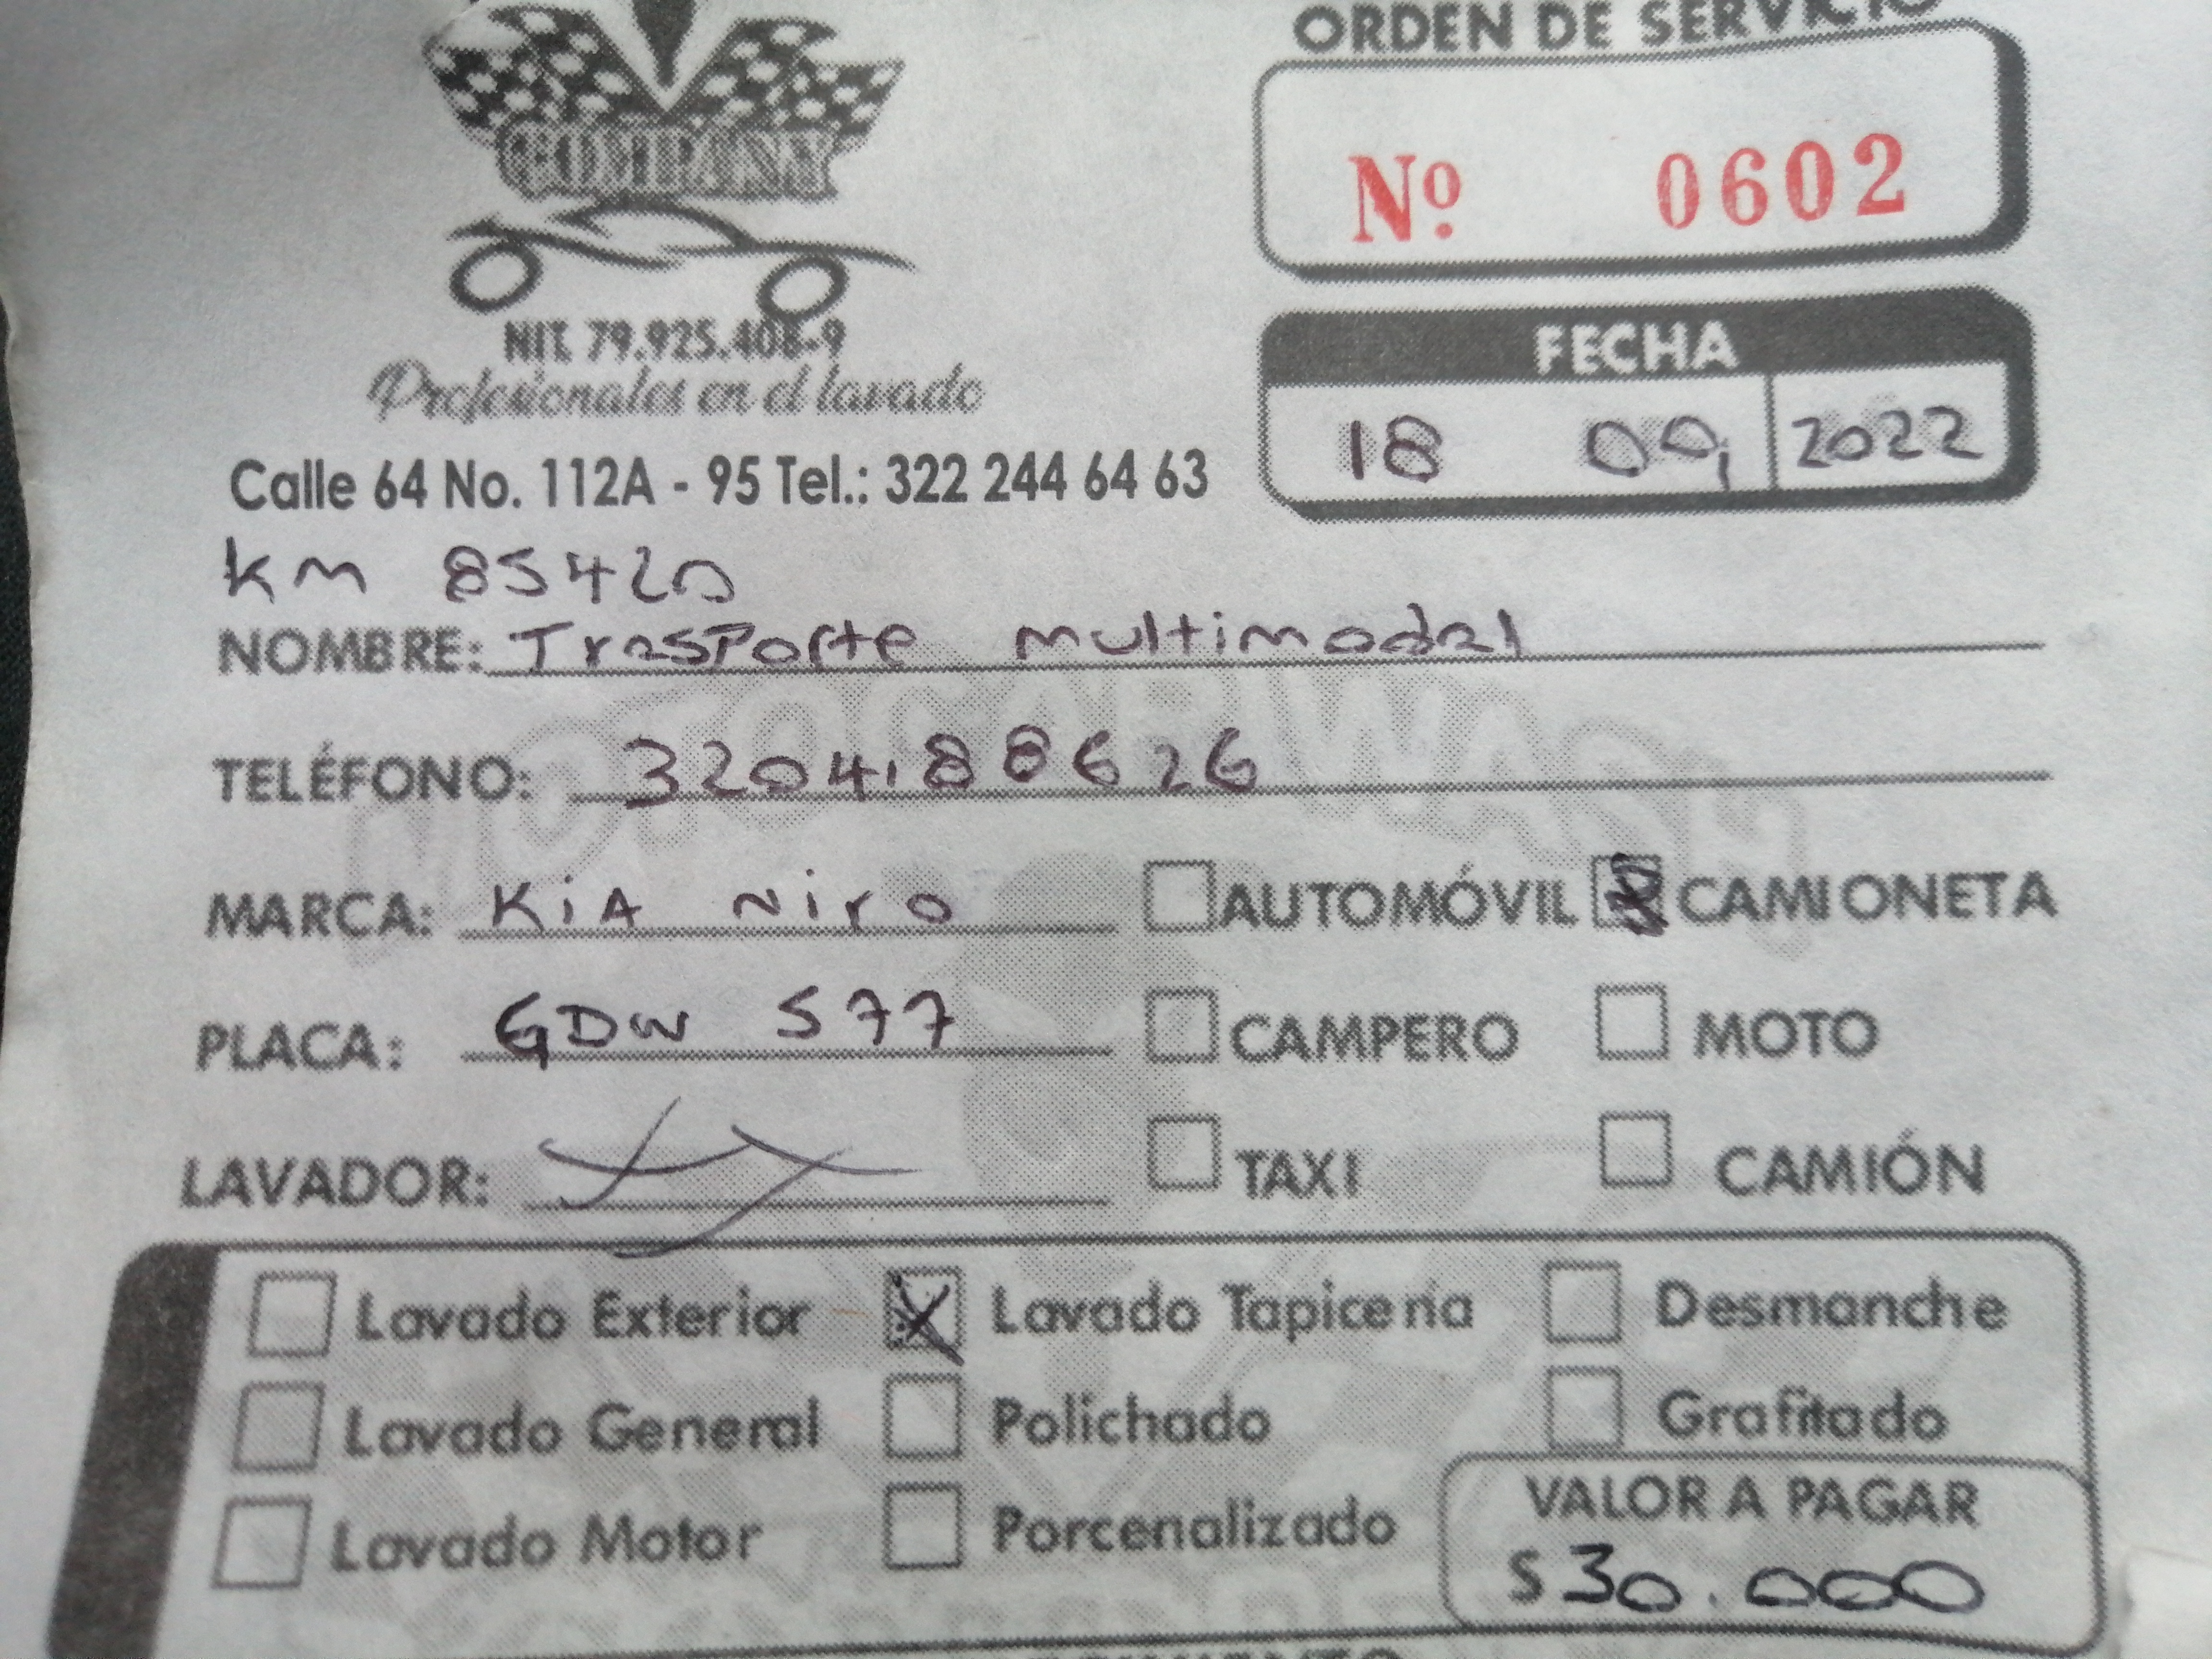 ORDEN DE SERVICIO
COMPANY
Nº 0602
NIT. 79.925.408-9
Profesionales en el lavado
FECHA
18 09 2022
Calle 64 No. 112A - 95 Tel.: 322 244 64 63
km 85420
NOMBRE: Trasporte multimodal
TELÉFONO: 3204188626
MARCA: KiA Niro AUTOMÓVIL CAMIONETA
PLACA: GDW 577 CAMPERO MOTO
LAVADOR: TAXI CAMIÓN
Lavado Exterior Lavado Tapicería Desmanche
Lavado General Polichado Grafitado
Lavado Motor Porcenalizado
VALOR A PAGAR
$ 30.000